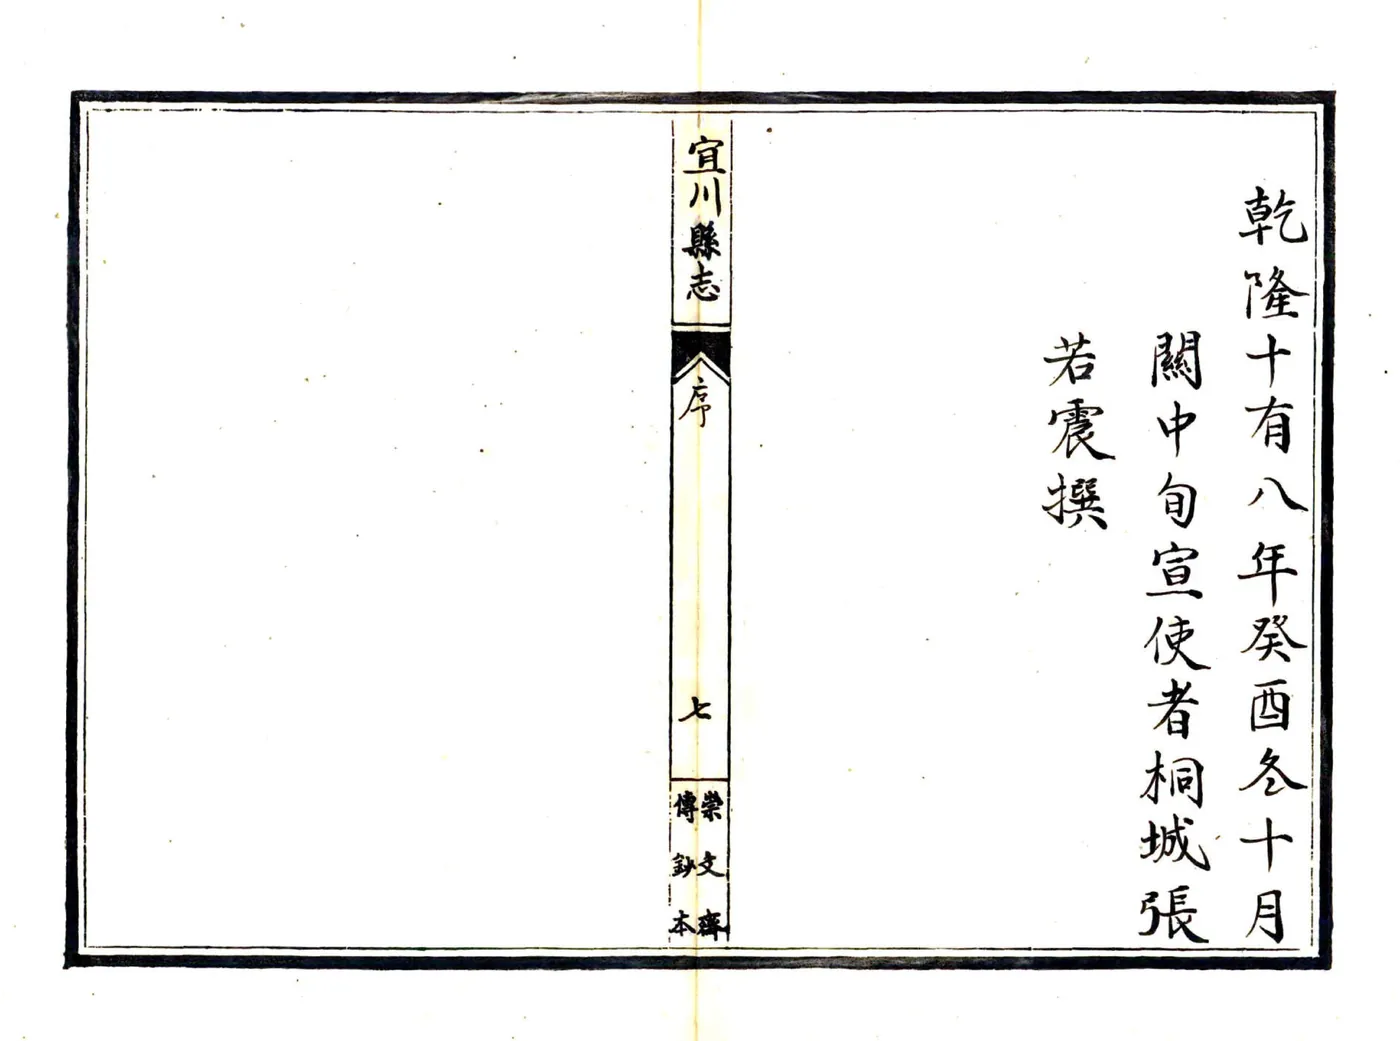 乾隆十有八年癸酉冬十月
關中旬宣使者桐城張
若震撰
宜川縣志
序
七
崇文齋
傳鈔本